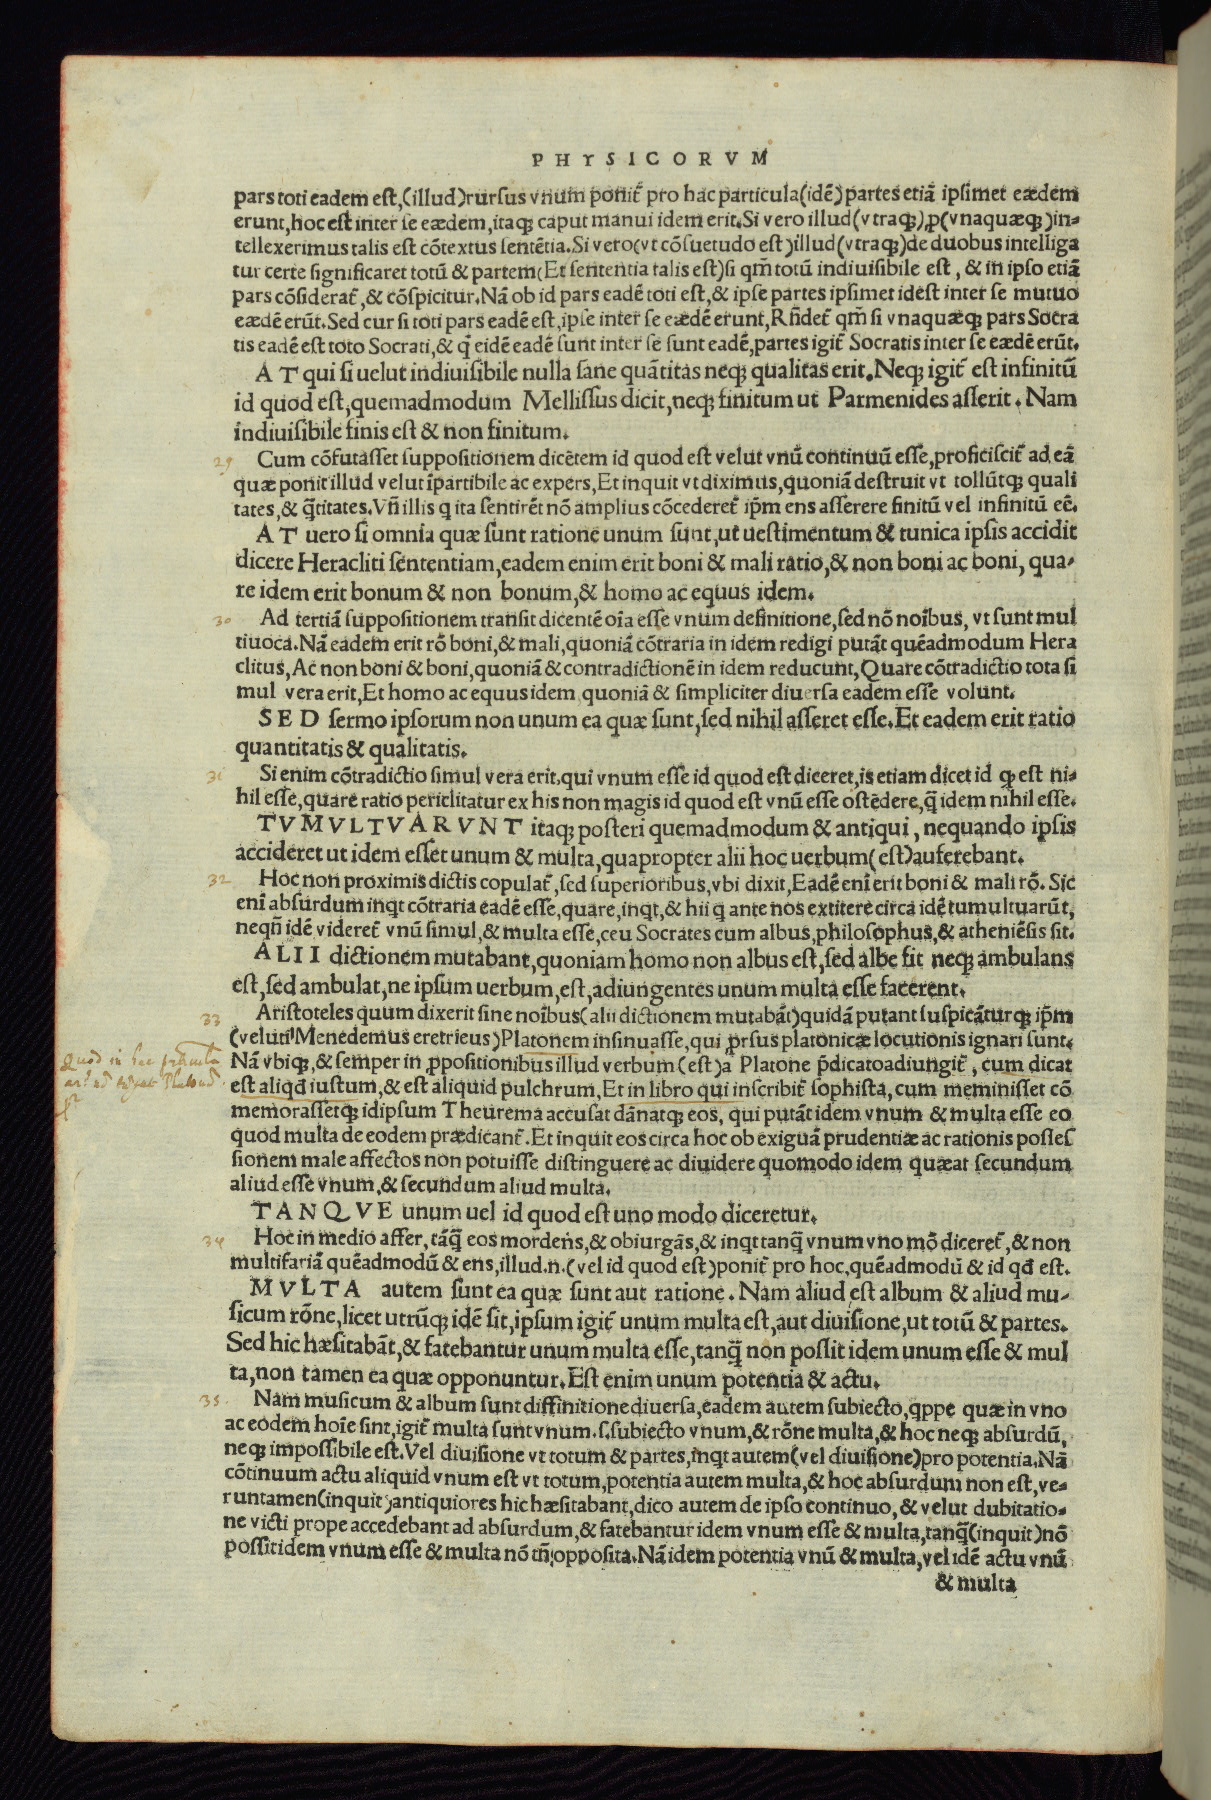 PHYSICORVM
pars toti eadem est,(illud)rursus vnum ponit᷒ pro hac particula(idē)partes etiā ipsimet eædem
erunt,hoc est inter se eædem,itaqꝫ caput manui idem erit.Si vero illud(vtraqꝫ)ꝓ(vnaquæqꝫ)in-
tellexerimus talis est cōtextus sentētia.Si vero(vt cōsuetudo est)illud(vtraqꝫ)de duobus intelliga
tur certe significaret totū & partem(Et sententia talis est)si qm̄ totū indiuisibile est, & in ipso etiā
pars cōsiderat᷒,& cōspicitur.Nā ob id pars eadē toti est,& ipse partes ipsimet idest inter se mutuo
eædē erūt.Sed cur si toti pars eadē est,ipse inter se eædē erunt,Rñdet᷒ qm̄ si vnaquæqꝫ pars Socra
tis eadē est toto Socrati,& q̄ eidē eadē sunt inter se sunt eadē,partes igit᷒ Socratis inter se eædē erūt.
AT qui si uelut indiuisibile nulla sane quātitas neqꝫ qualitas erit.Neqꝫ igit᷒ est infinitū
id quod est,quemadmodum Mellissus dicit,neqꝫ finitum ut Parmenides asserit. Nam
indiuisibile finis est & non finitum.
29 Cum cōfutasset suppositionem dicētem id quod est velut vnū continuū esse,proficiscit᷒ ad eā
quæ ponit illud velut īpartibile ac expers,Et inquit vt diximus,quoniā destruit vt tollūtqꝫ quali
tates,& q̄titates.Vñ illis q ita sentirēt nō amplius cōcederet᷒ ip̄m ens asserere finitū vel infinitū eē.
AT uero si omnia quæ sunt ratione unum sunt,ut uestimentum & tunica ipsis accidit
dicere Heracliti sententiam,eadem enim erit boni & mali ratio,& non boni ac boni, qua-
re idem erit bonum & non bonum,& homo ac equus idem.
30 Ad tertiā suppositionem transit dicentē oīa esse vnum definitione,sed nō noībus, vt sunt mul
tiuoca.Nā eadem erit rō boni,& mali,quoniā cōtraria in idem redigi putāt quēadmodum Hera
clitus,Ac non boni & boni,quoniā & contradictionē in idem reducunt,Quare cōtradictio tota si
mul vera erit,Et homo ac equus idem quoniā & simpliciter diuersa eadem esse volunt.
SED sermo ipsorum non unum ea quæ sunt,sed nihil asseret esse.Et eadem erit ratio
quantitatis & qualitatis.
31 Si enim cōtradictio simul vera erit,qui vnum esse id quod est diceret,is etiam dicet id qꝫ est ni-
hil esse,quare ratio periclitatur ex his non magis id quod est vnū esse ostēdere,q̄ idem nihil esse.
TVMVLTVARVNT itaqꝫ posteri quemadmodum & antiqui, nequando ipsis
accideret ut idem esset unum & multa,quapropter alii hoc uerbum(est)auferebant.
32 Hoc non proximis dictis copulat᷒,sed superioribus,vbi dixit,Eadē enī erit boni & mali rō. Sic
enī absurdum inqt cōtraria eadē esse,quare,inqt,& hii q ante nos extitere circa idē tumultuarūt,
neqñ idē videret᷒ vnū simul,& multa esse,ceu Socrates cum albus,philosophus,& atheniēsis sit.
ALII dictionem mutabant,quoniam homo non albus est,sed albe fit neqꝫ ambulans
est,sed ambulat,ne ipsum uerbum,est,adiungentes unum multa esse facerent.
33 Aristoteles quum dixerit sine noībus(alii dictionem mutabāt)quidā putant suspicāturqꝫ ip̄m
(veluti Menedemus eretrieus)Platonem insinuasse,qui ꝓrsus platonicæ locutionis ignari sunt.
Nā vbiqꝫ,& semper in ꝓpositionibus illud verbum(est)a Platone p̄dicato adiungit᷒, cum dicat
est aliqd iustum,& est aliquid pulchrum,Et in libro qui inscribit᷒ sophista,cum meminisset cō
memorassetqꝫ idipsum Theurema accusat dānatqꝫ eos, qui putāt idem vnum & multa esse eo
quod multa de eodem prædicant᷒.Et inquit eos circa hoc ob exiguā prudentiæ ac rationis posses
sionem male affectos non potuisse distinguere ac diuidere quomodo idem quæat secundum
aliud esse vnum,& secundum aliud multa.
TANQVE unum uel id quod est uno modo diceretur.
34 Hoc in medio affer,tāq̄ eos mordens,& obiurgās,& inqt tanq̄ vnum vno mō diceret᷒,& non
multifariā quēadmodū & ens,illud.n.(vel id quod est)ponit᷒ pro hoc,quēadmodū & id qd est.
MVLTA autem sunt ea quæ sunt aut ratione.Nam aliud est album & aliud mu-
sicum rōne,licet utrūqꝫ idē sit,ipsum igit᷒ unum multa est,aut diuisione,ut totū & partes.
Sed hic hæsitabāt,& fatebantur unum multa esse,tanq̄ non possit idem unum esse & mul
ta,non tamen ea quæ opponuntur.Est enim unum potentia & actu.
35 Nam musicum & album sunt diffinitione diuersa,eadem autem subiecto,qppe quæ in vno
ac eodem hoīe sint,igit᷒ multa sunt vnum.s.subiecto vnum,& rōne multa,& hoc neqꝫ absurdū,
neqꝫ impossibile est.Vel diuisione vt totum & partes,inqt autem(vel diuisione)pro potentia.Nā
cōtinuum actu aliquid vnum est vt totum,potentia autem multa,& hoc absurdum non est,ve-
runtamen(inquit)antiquiores hic hæsitabant,dico autem de ipso continuo,& velut dubitatio-
ne victi prope accedebant ad absurdum,& fatebantur idem vnum esse & multa,tanq̄(inquit)nō
possit idem vnum esse & multa nō tñ opposita.Nā idem potentia vnū & multa,vel idē actu vnū
& multa